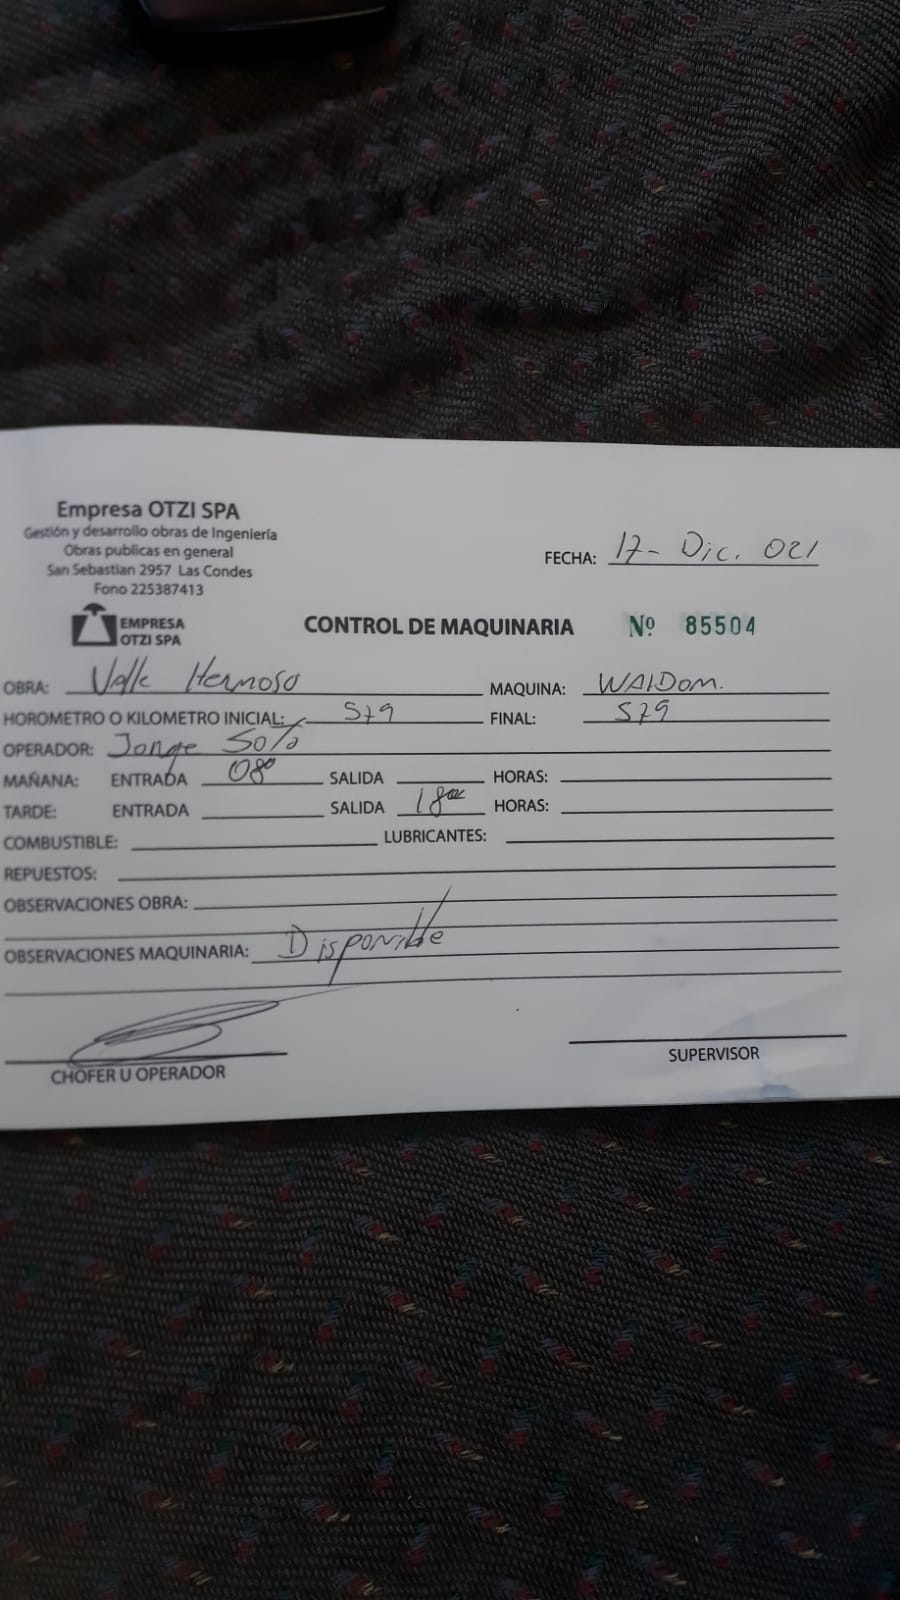 Empresa OTZI SPA
Gestión y desarrollo obras de Ingeniería
Obras publicas en general
San Sebastian 2957 Las Condes
Fono 225387413
FECHA: 17- Dic. 021
EMPRESA
OTZI SPA
CONTROL DE MAQUINARIA Nº 85504
OBRA: Valle Hermoso MAQUINA: WALDOM.
HOROMETRO O KILOMETRO INICIAL: 579 FINAL: 579
OPERADOR: Jorge Soto
MAÑANA: ENTRADA 08⁰⁰ SALIDA HORAS:
TARDE: ENTRADA SALIDA 18⁰⁰ HORAS:
COMBUSTIBLE: LUBRICANTES:
REPUESTOS:
OBSERVACIONES OBRA:
OBSERVACIONES MAQUINARIA: Disponible
CHOFER U OPERADOR SUPERVISOR